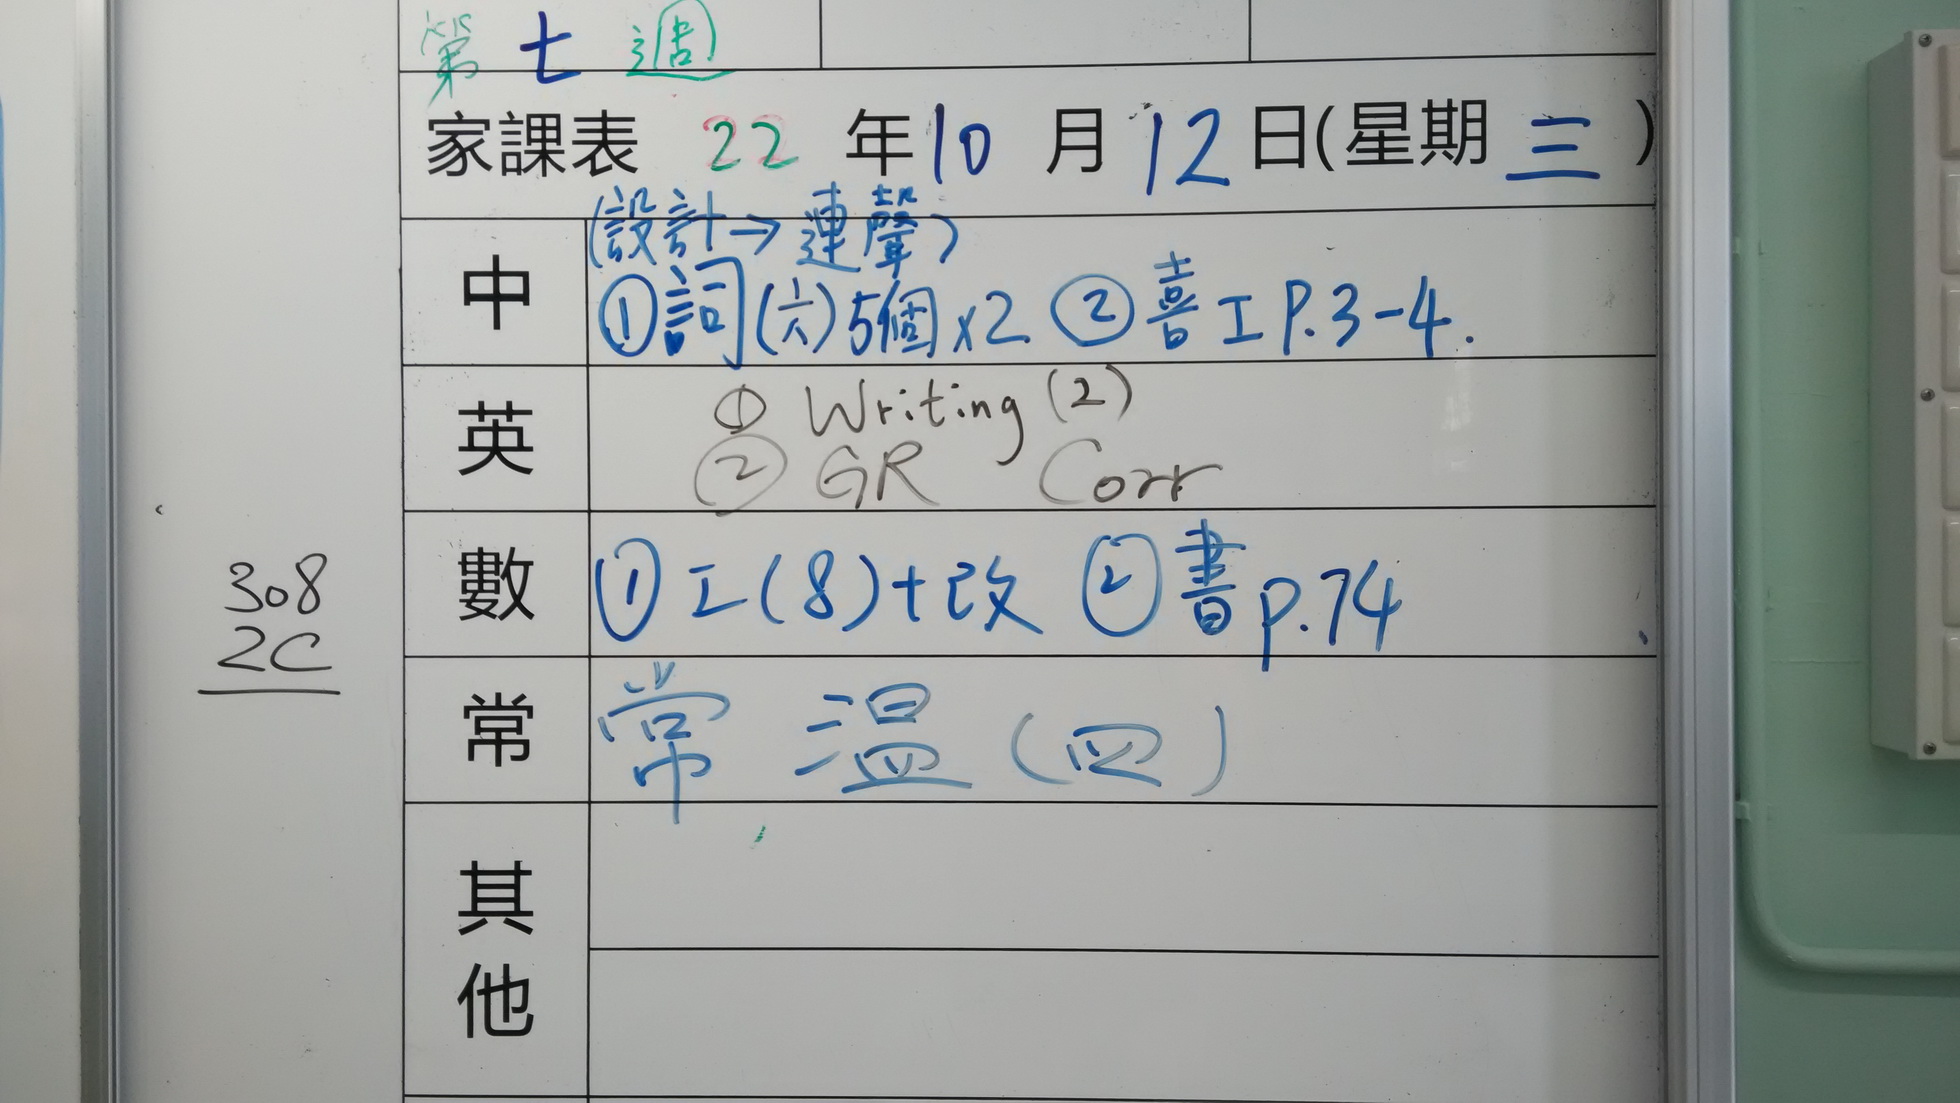 第七週
家課表 22 年 10 月 12 日(星期 三 )
(設計→連聲)
中 ①詞(六)5個x2 ②喜工P.3-4.
英 ① Writing (2)
② GR Corr
數 ①工(8)+改 ②書p.74
常 常 溫(四)
其他
308
2C